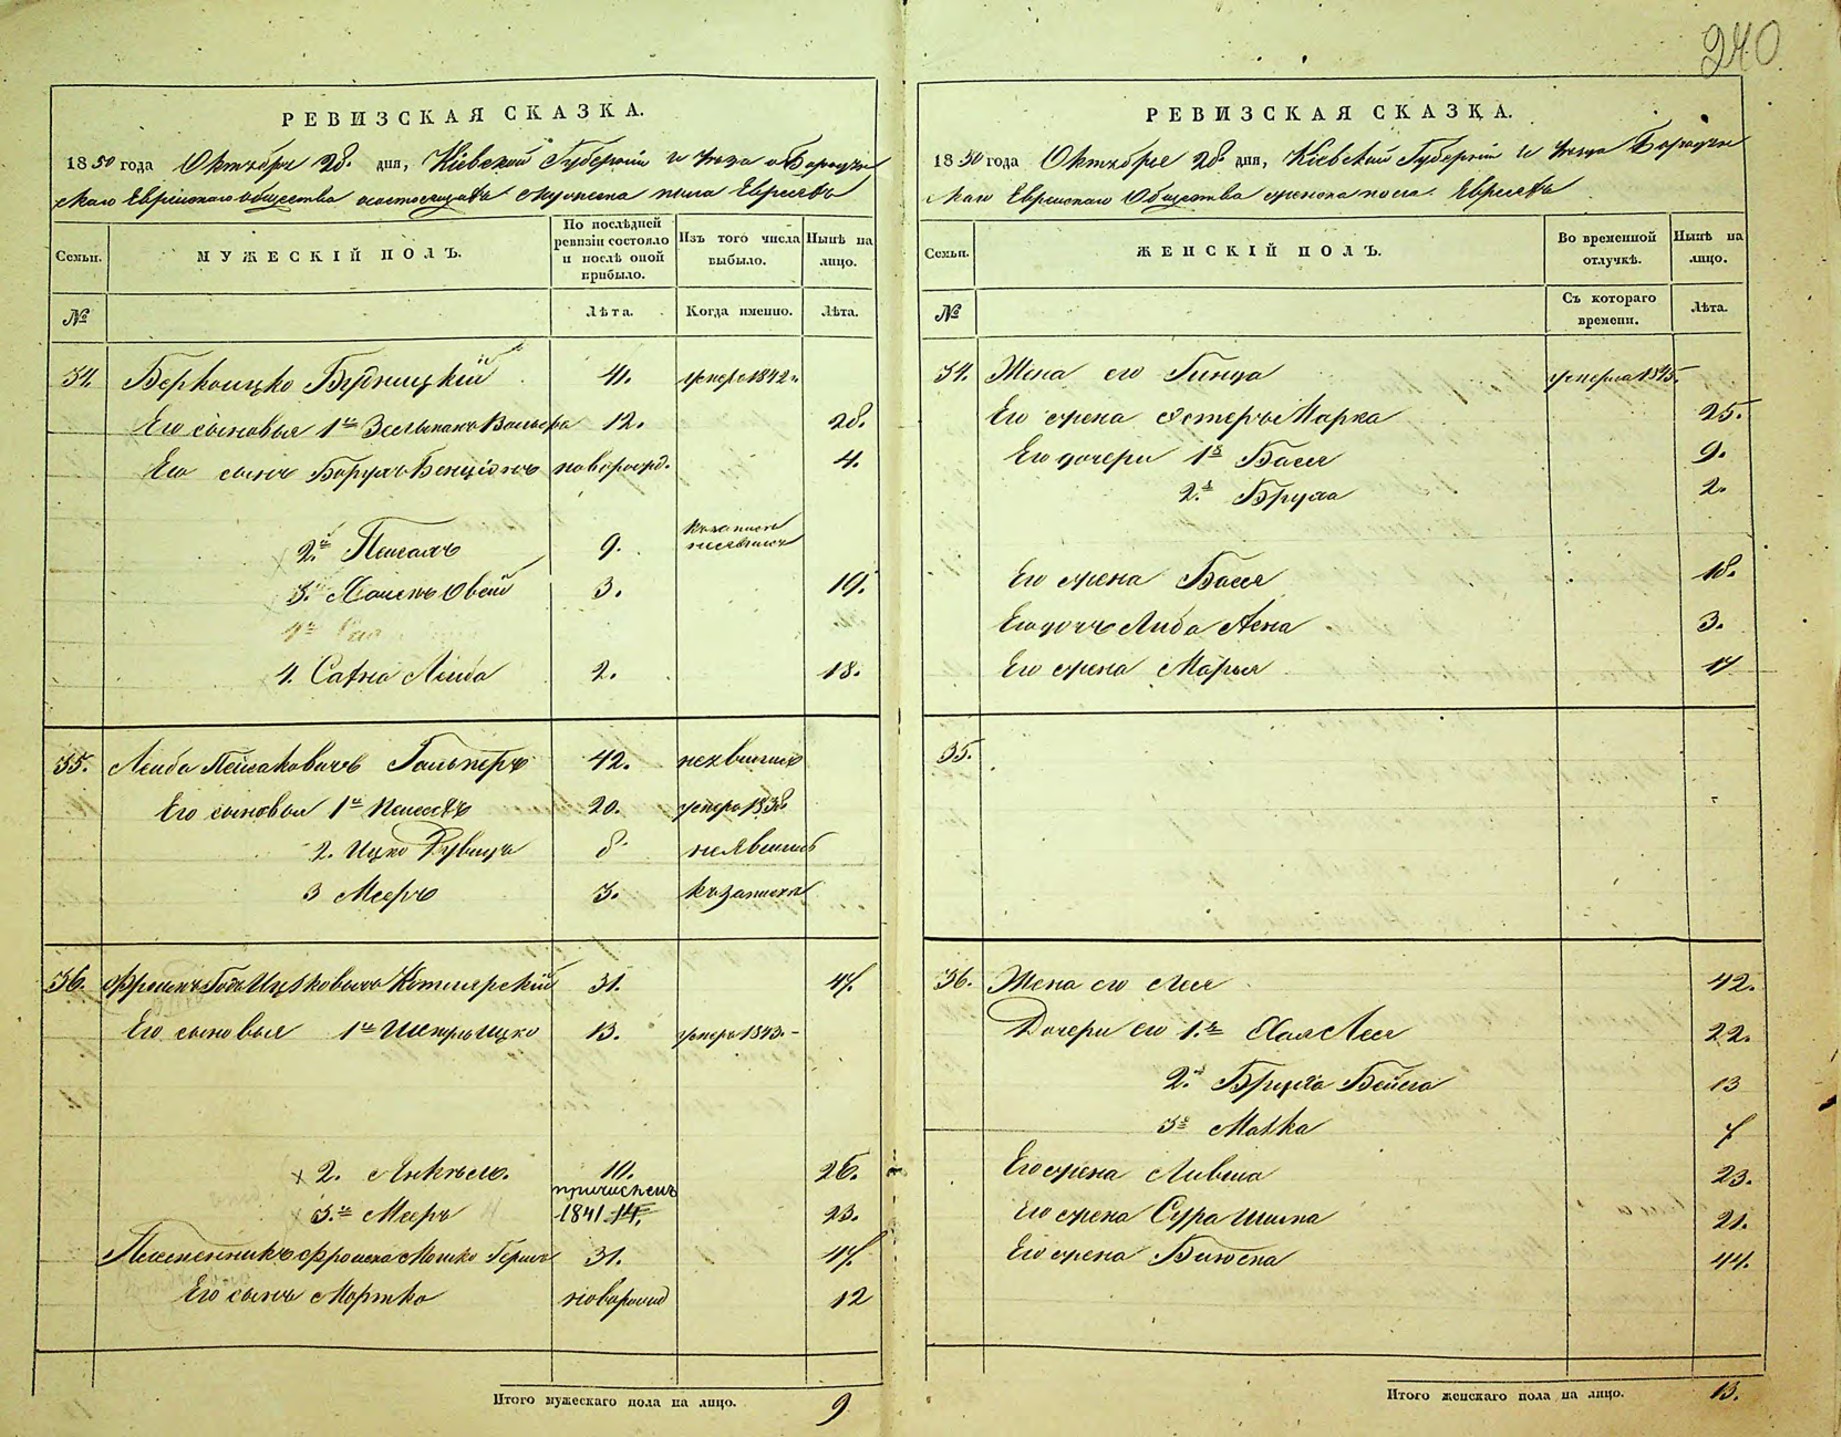 240
РЕВИЗСКАЯ СКАЗКА.
1850 года Октября 28. дня, Кіевской Губерніи и Уезда о
скаго Еврейскаго общества о состоящихъ мужеска пола Евреяхъ
Семьи.
МУЖЕСКІЙ ПОЛЪ.
По послѣдней ревизіи состояло и послѣ оной прибыло.
Изъ того числа выбыло.
Нынѣ на лицо.
№
Лѣта.
Когда именно.
Лѣта.
34. Беркоицко 4. умеръ 1842.
Его сыновья 1й 12. 28.
Его сынъ Борухъ Бенціонъ новорожд. 4.
2й Пейсахъ 9. къ записке неявился
3. Хаимъ Овсей 3. 19.
4. Лейба 2. 18.
35. Лейба Пейсаковичъ Гальперъ 42. неявились
Его сыновья 1й Пейсахъ 20. умеръ 1838
2. Ицко Дувидъ 8. неявились
3 Мееръ 3. къ записке
36. Фроимъ Ицковичъ Котлярскій 31. 47.
Его сыновья 1й Шмуль Ицко 13. умеръ 1843.
2. Янкель. 10. 26.
причисленъ
3й Мееръ 1841 14. 23.
Племенникъ Фроима Мошко Гершъ 31. 47.
Его сынъ Мортко новорожд 12
Итого мужескаго пола на лицо. 9
РЕВИЗСКАЯ СКАЗКА.
1850 года Октября 28. дня, Кіевской Губерніи и Уезда
скаго Еврейскаго Общества женска пола. Евреяхъ
Семьи.
ЖЕНСКІЙ ПОЛЪ.
Во временной отлучкѣ.
Нынѣ на лицо.
№
Съ котораго времени.
Лѣта.
34. Жена его умерла 1845.
Его жена Эстеръ Марка 25.
Его дочери 1я Бася 9.
2я Бруха 2.
Его жена Бася 18.
Его дочь Либа 3.
Его жена Марья 17
35.
36. Жена его Лея 42.
Дочери его 1я Хая Лея 22.
2я Бруха Бейла 13
3я Малка 7
Его жена Ливша 23.
Его жена Сура 21.
Его жена 44.
Итого женскаго пола на лицо. 13.